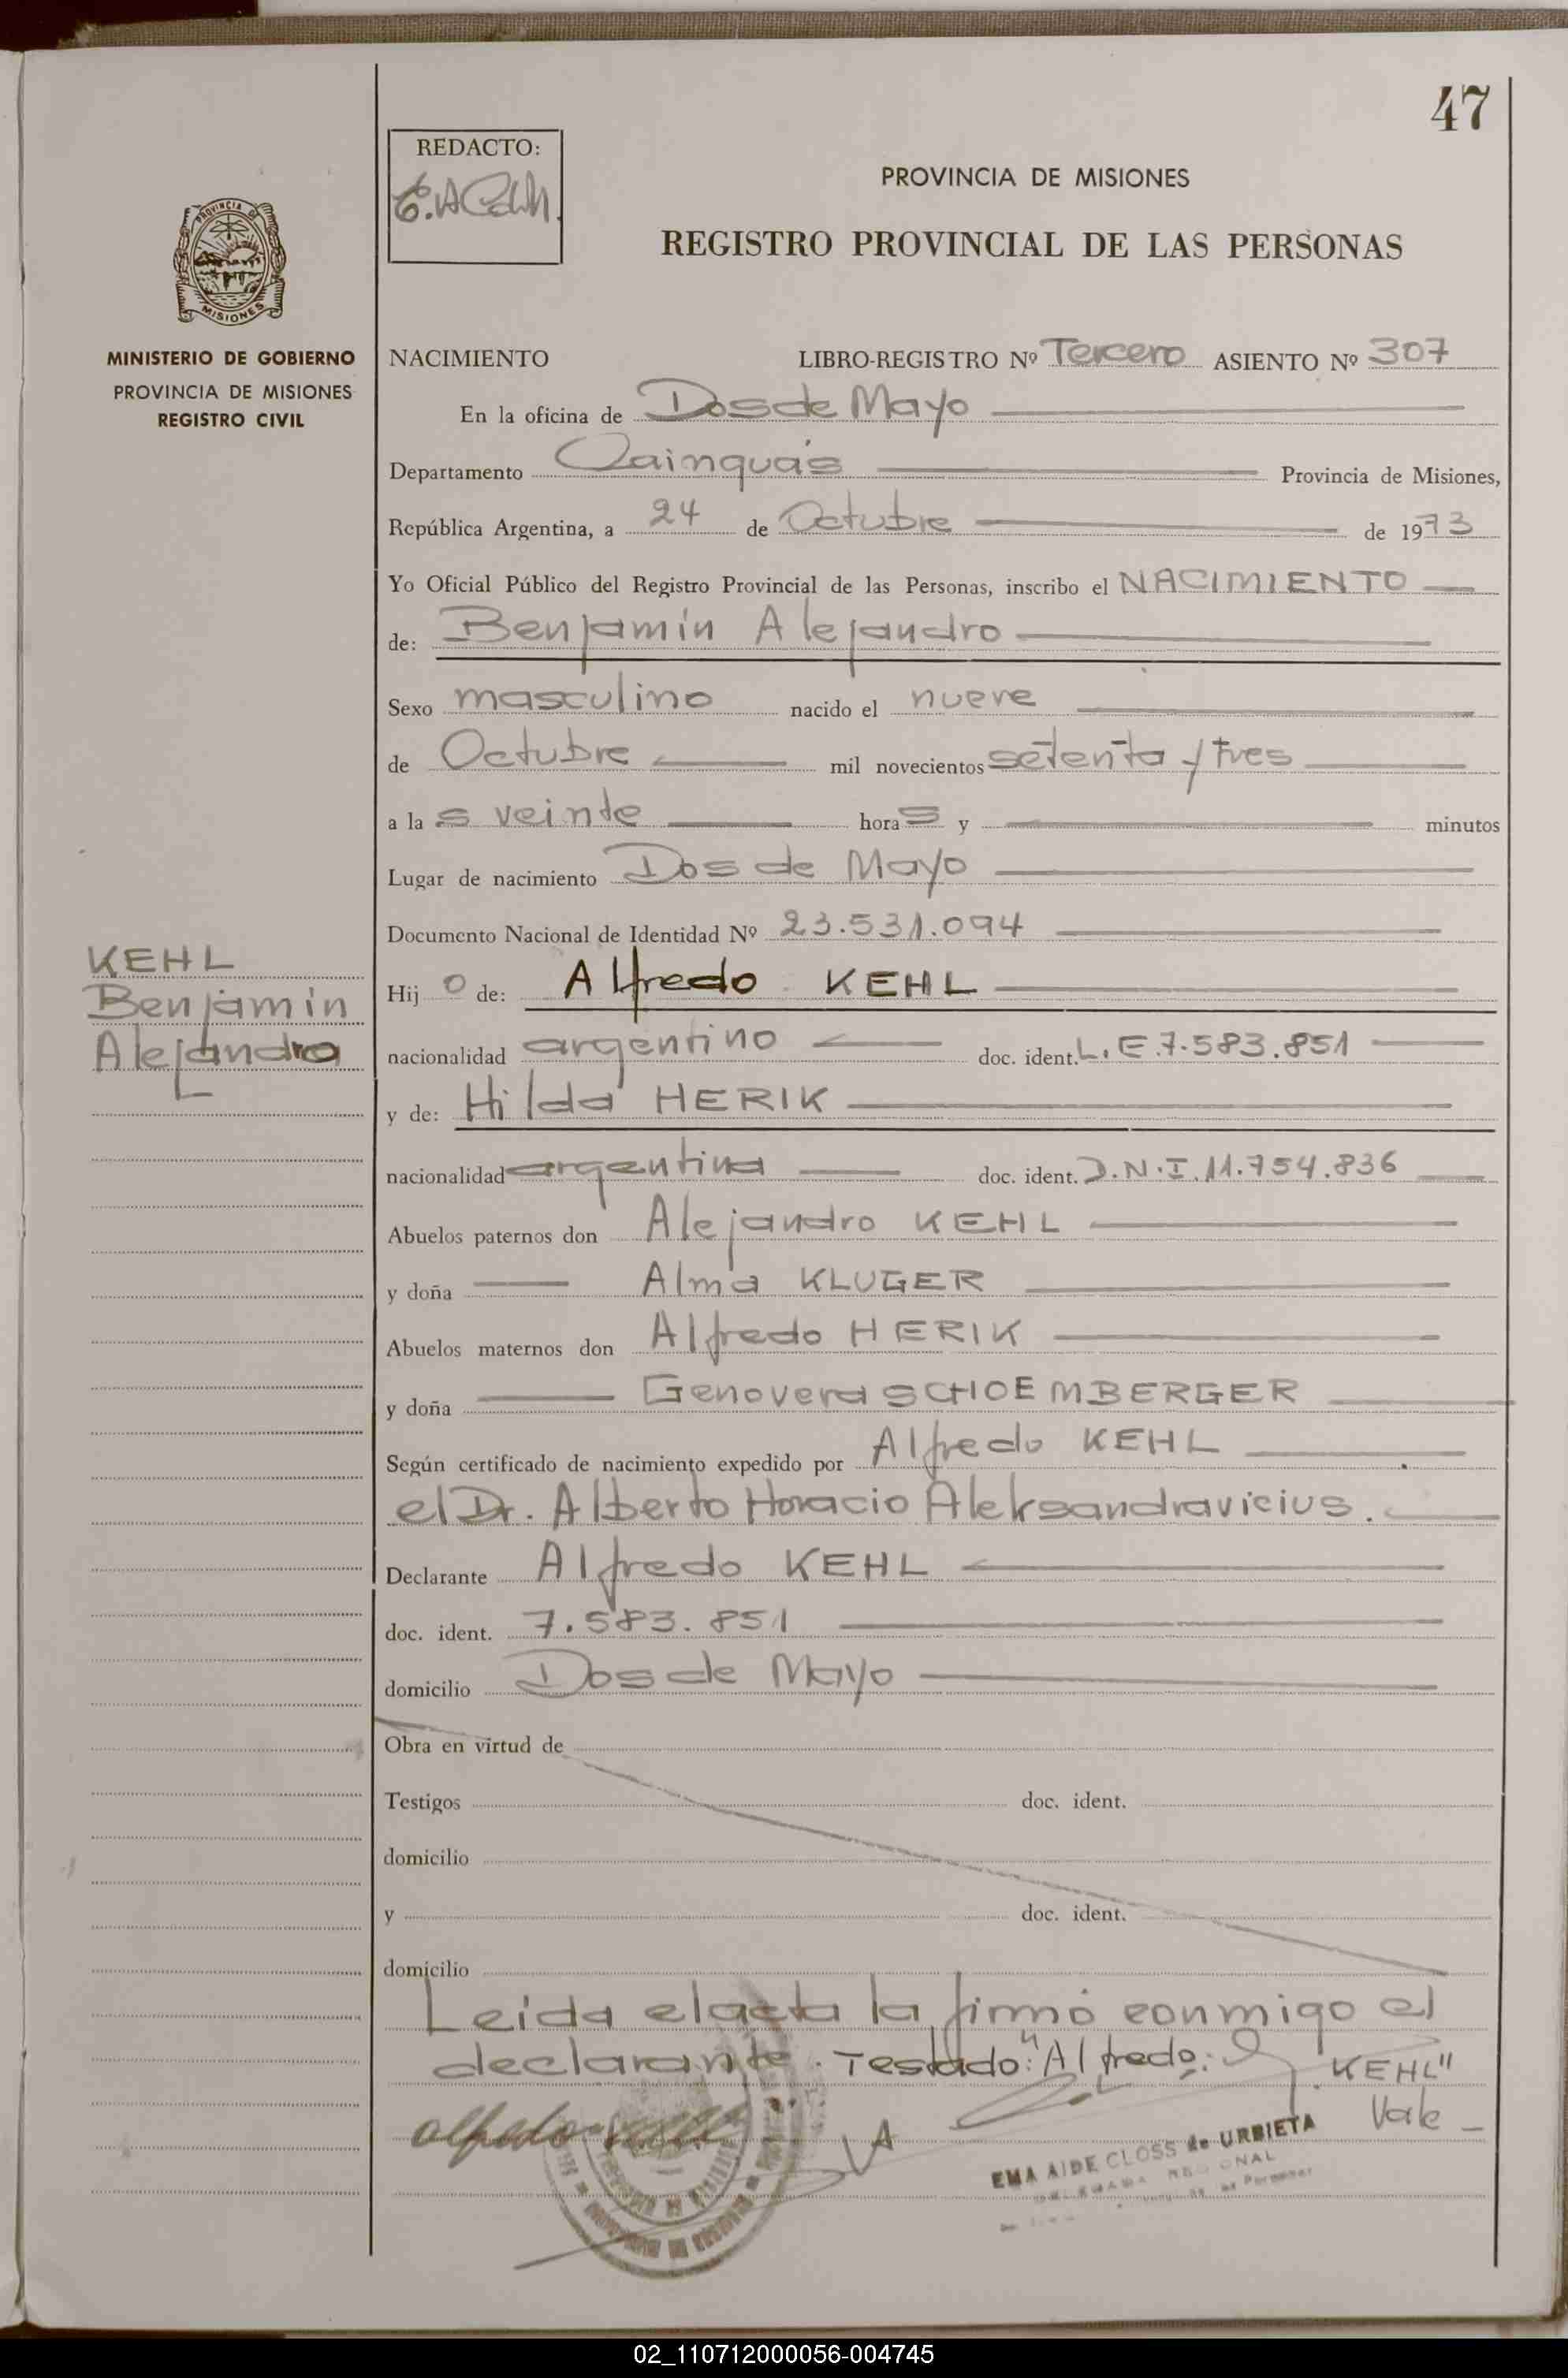 47
REDACTO:
PROVINCIA DE MISIONES
REGISTRO PROVINCIAL DE LAS PERSONAS
PROVINCIA DE
MISIONES
MINISTERIO DE GOBIERNO
PROVINCIA DE MISIONES
REGISTRO CIVIL
NACIMIENTO LIBRO-REGISTRO Nº Tercero ASIENTO Nº 307
En la oficina de Dos de Mayo
Departamento Cainguás Provincia de Misiones,
República Argentina, a 24 de Octubre de 1973
Yo Oficial Público del Registro Provincial de las Personas, inscribo el NACIMIENTO
de: Benjamín Alejandro
Sexo masculino nacido el nueve
de Octubre mil novecientos setenta y tres
a la s veinte hora s y minutos
Lugar de nacimiento Dos de Mayo
Documento Nacional de Identidad Nº 23.531.094
KEHL
Benjamín
Alejandro
Hij o de: Alfredo KEHL
nacionalidad argentino doc. ident. L.E.7.583.851
y de: Hilda HERIK
nacionalidad argentina doc. ident. D.N.I.11.754.836
Abuelos paternos don Alejandro KEHL
y doña Alma KLUGER
Abuelos maternos don Alfredo HERIK
y doña Genoveva SCHOEMBERGER
Según certificado de nacimiento expedido por Alfredo KEHL
el Dr. Alberto Horacio Aleksandravicius.
Declarante Alfredo KEHL
doc. ident. 7.583.851
domicilio Dos de Mayo
Obra en virtud de
Testigos doc. ident.
domicilio
y doc. ident.
domicilio
Leida el acta la firmó conmigo el
declarante. Testado: "Alfredo KEHL"
Vale
EMA AIDE CLOSS de URBIETA